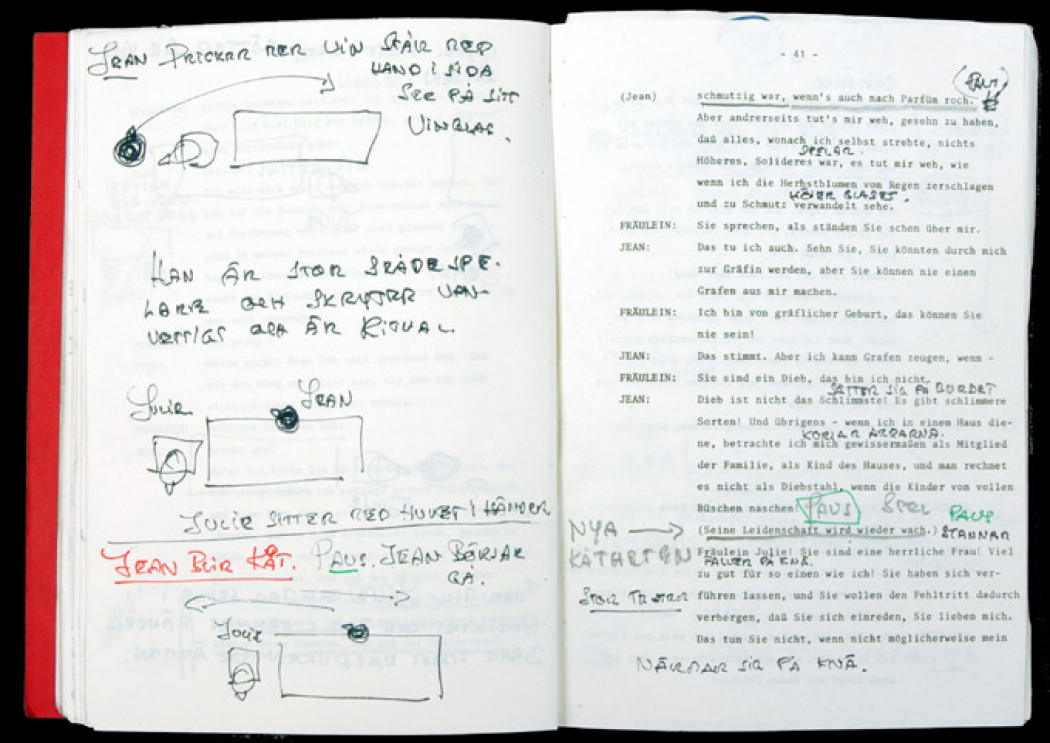 JEAN DRICKER MER VIN STÅR MED
HAND I SIDA
SER PÅ SITT
VINGLAS.
HAN ÄR STOR SKÅDESPE-
LARE OCH SKRYTER VAN-
VETTIGT OCH ÄR
JULIE JEAN
JULIE SITTER MED HUVET I HÄNDER
JEAN BLIR KÅT. PAUS. JEAN BÖRJAR
GÅ.
JULIE
- 41 -
(Jean) schmutzig war, wenn's auch nach Parfüm roch.
Aber andrerseits tut's mir weh, gesehn zu haben,
daß alles, wonach ich selbst strebte, nichts
SPELAR.
Höheres, Solideres war, es tut mir weh, wie
wenn ich die Herbstblumen vom Regen zerschlagen
HÖJER GLASET.
und zu Schmutz verwandelt sehe.
FRÄULEIN: Sie sprechen, als ständen Sie schon über mir.
JEAN: Das tu ich auch. Sehn Sie, Sie könnten durch mich
zur Gräfin werden, aber Sie können nie einen
Grafen aus mir machen.
FRÄULEIN: Ich bin von gräflicher Geburt, das können Sie
nie sein!
JEAN: Das stimmt. Aber ich kann Grafen zeugen, wenn -
FRÄULEIN: Sie sind ein Dieb, das bin ich nicht.
SÄTTER SIG PÅ BORDET
JEAN: Dieb ist nicht das Schlimmste! Es gibt schlimmere
Sorten! Und übrigens - wenn ich in einem Haus die-
KORSAR ARMARNA.
ne, betrachte ich mich gewissermaßen als Mitglied
der Familie, als Kind des Hauses, und man rechnet
es nicht als Diebstahl, wenn die Kinder vom vollen
Büschen naschen! PAUS SPEL PAUS
NYA (Seine Leidenschaft wird wieder wach.) STANNAR
Fräulein Julie! Sie sind eine herrliche Frau! Viel
FALLER PÅ KNÄ.
zu gut für so einen wie ich! Sie haben sich ver-
STOR führen lassen, und Sie wollen den Fehltritt dadurch
verbergen, daß Sie sich einreden, Sie lieben mich.
Das tun Sie nicht, wenn nicht möglicherweise mein
NÄRMAR SIG PÅ KNÄ.